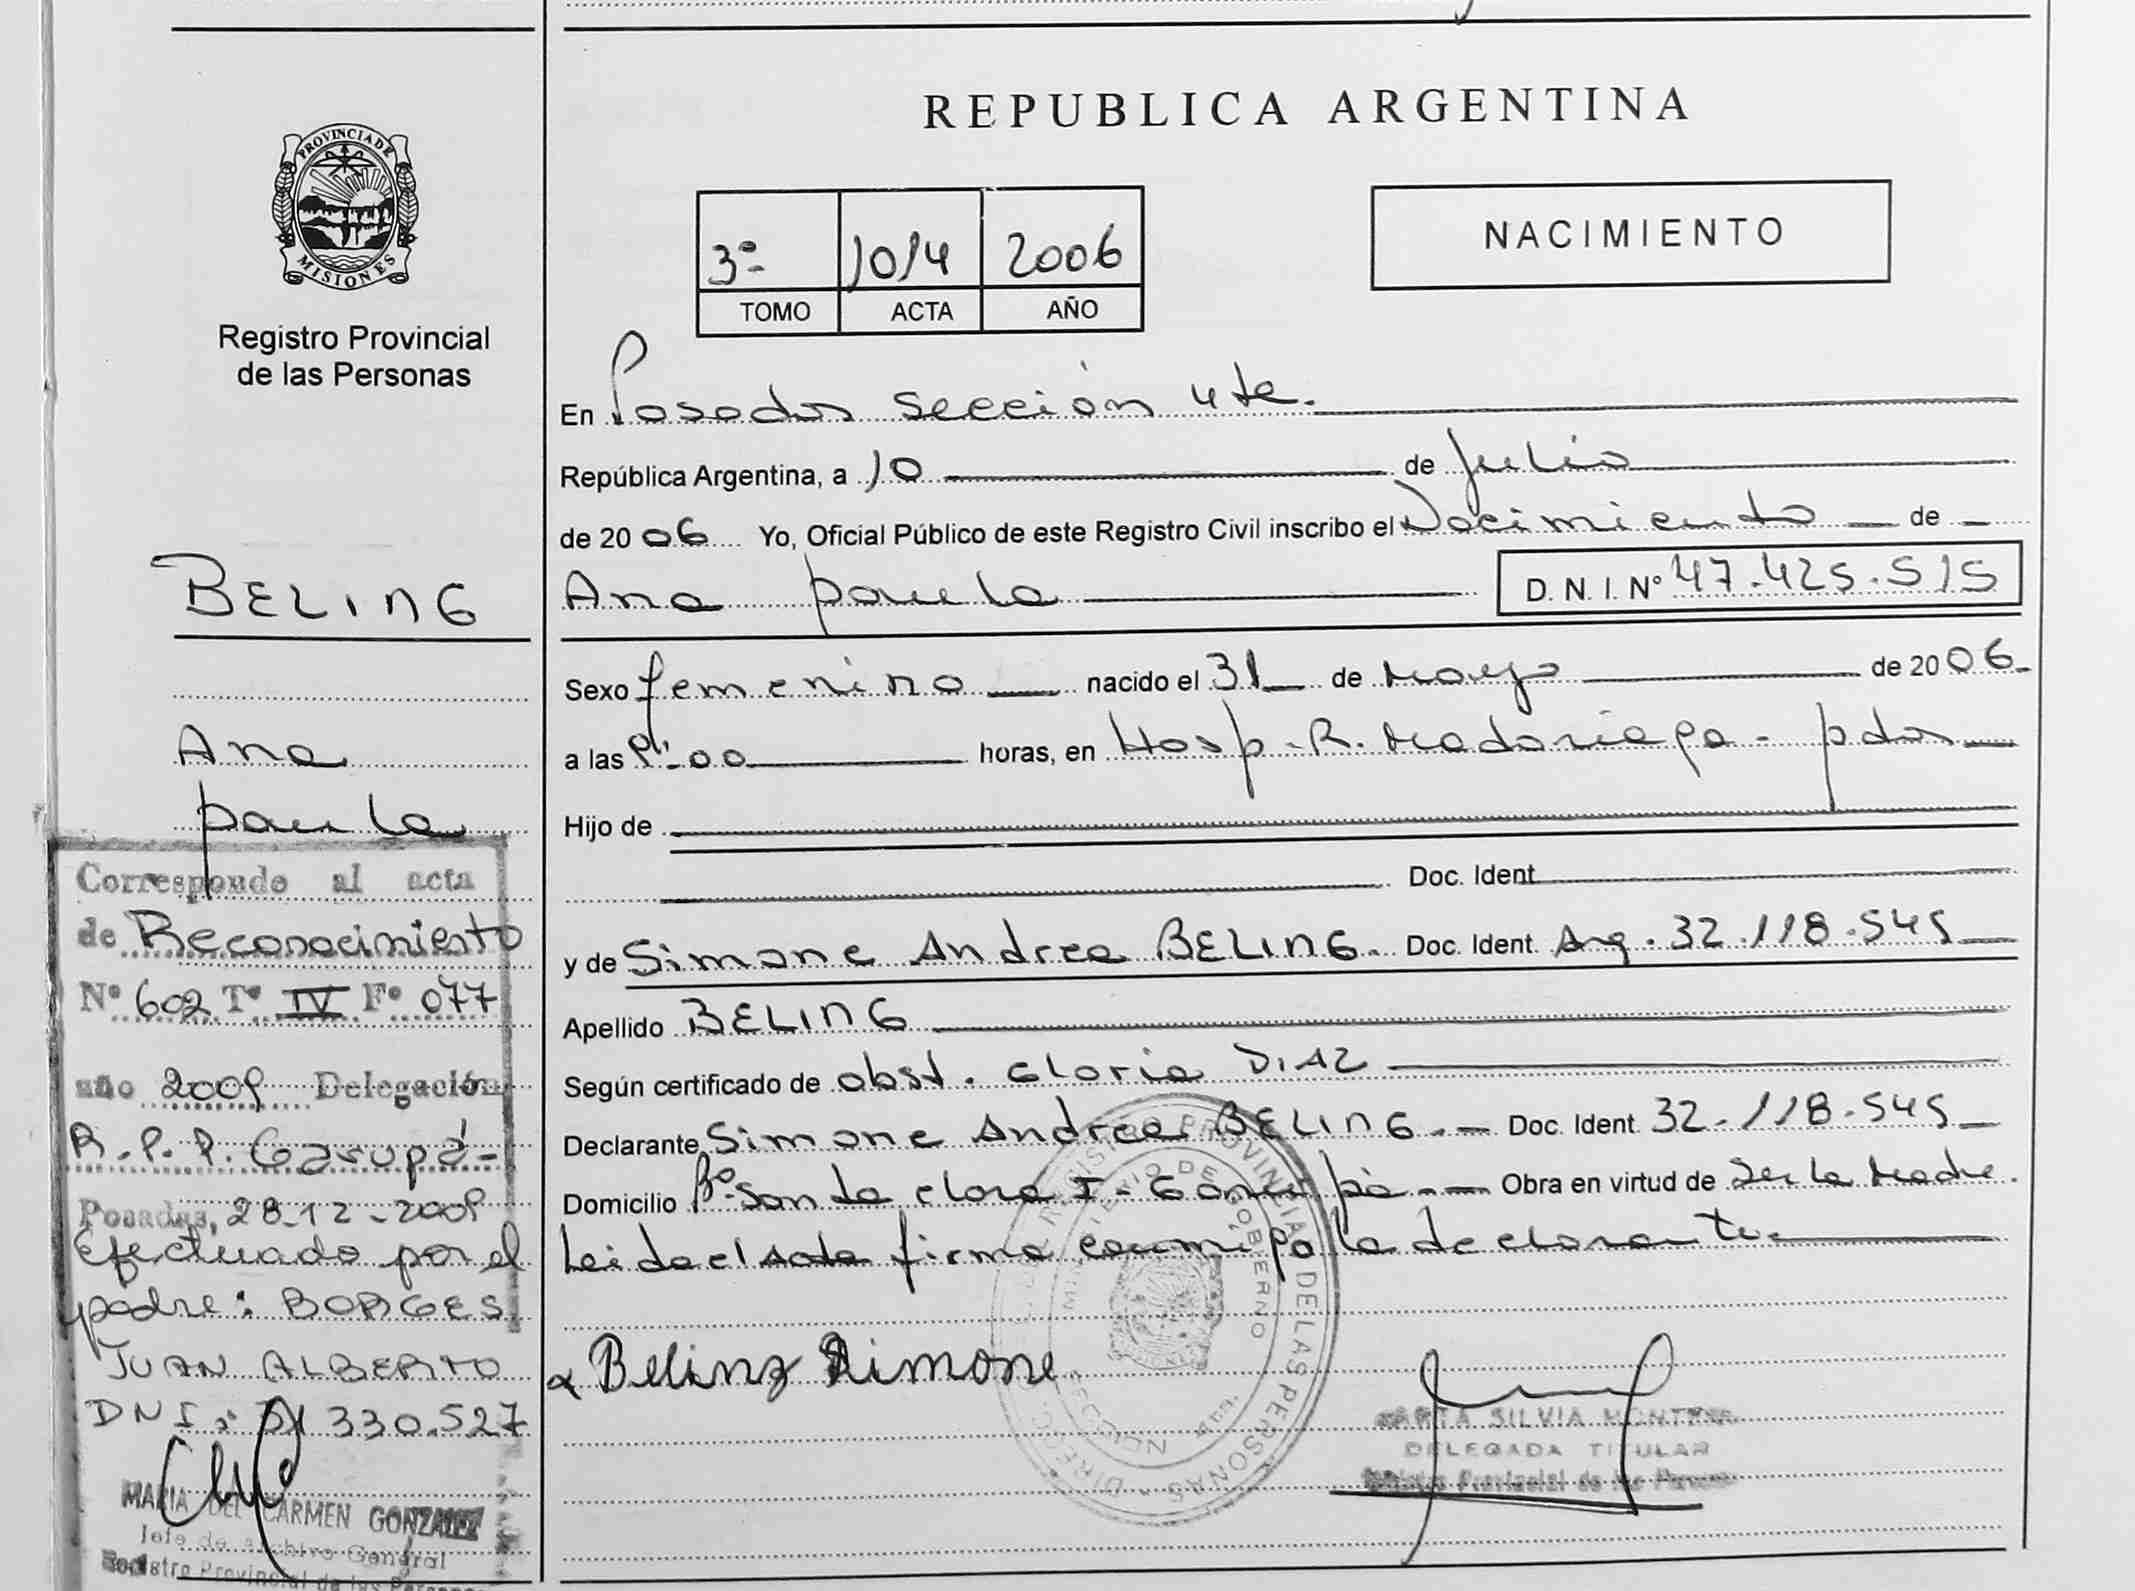 PROVINCIA DE
MISIONES
Registro Provincial
de las Personas
BELING
Ana
paula
Corresponde al acta
de Reconocimiento
Nº 602 Tº IV Fº 077
año 2009 Delegación
R.P.P. Garupá-
Posadas, 28-12-2009
Efectuado por el
padre: BORGES
JUAN ALBERTO
DNI: 330.527
MARIA DEL CARMEN GONZALEZ
Jefe de Archivo General
Registro Provincial de las Personas
REPUBLICA ARGENTINA
3º- 1014 2006
TOMO ACTA AÑO
NACIMIENTO
En Posadas sección 4ta.
República Argentina, a 10 de julio
de 2006 Yo, Oficial Público de este Registro Civil inscribo el Nacimiento de
Ana paula D. N. I. Nº 47.425.515
Sexo femenino nacido el 31 de Mayo de 2006-
a las :00 horas, en Hosp. R. Madariaga - pdas
Hijo de
Doc. Ident.
y de Simone Andrea BELING. Doc. Ident. Arg. 32.118.545
Apellido BELING
Según certificado de obst. Gloria DIAZ
Declarante Simone Andrea BELING.- Doc. Ident. 32.118.545
Domicilio Bº Santa clara I - Garupá.- Obra en virtud de ser la Madre.
Leida el acta firma conmigo la declarante.
Beling Simone
DIRECC. REGISTRO PROVINCIAL DE LAS PERSONAS
MINISTERIO DE GOBIERNO
SILVIA
DELEGADA TITULAR
Registro Provincial de las Personas